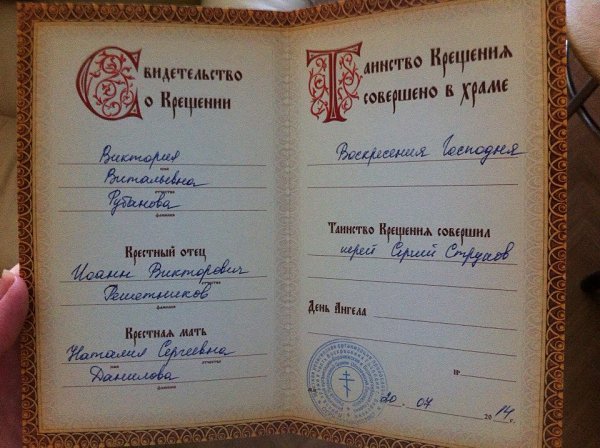 Свидетельство
о Крещении
Виктория
имя
Витальевна
отчество
Рубанова
фамилия
Крестный отец
Иоанн Викторович
отчество
Решетников
фамилия
Крестная мать
Наталия Сергеевна
имя отчество
Данилова
фамилия
Таинство Крещения
совершено в храме
Воскресения Господня
Таинство Крещения совершил
иерей Сергий
День Ангела
№
20 07 2014 г.